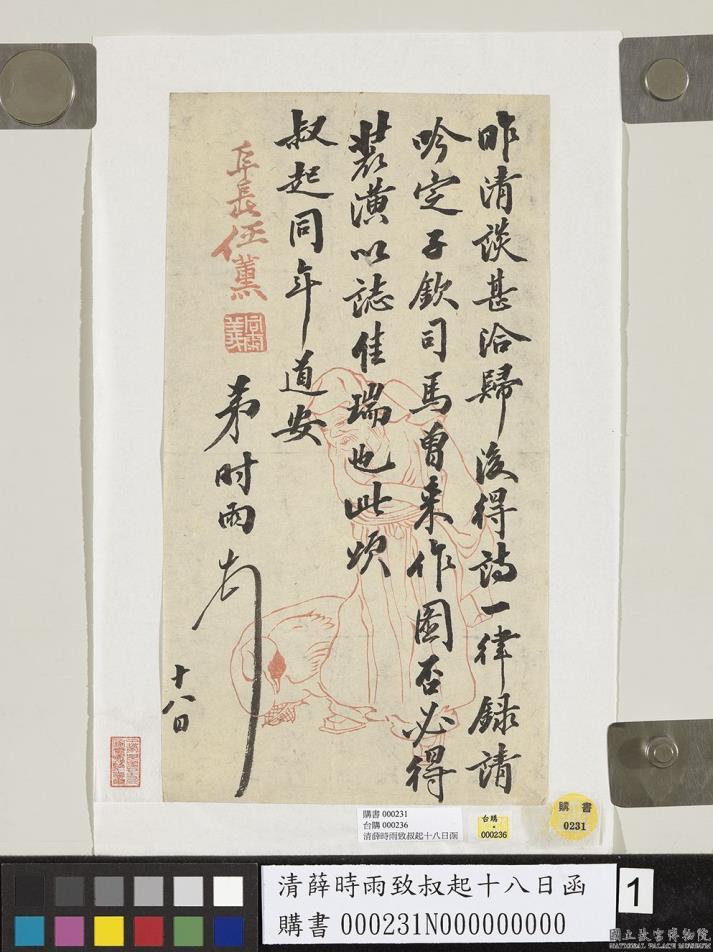 昨清談甚洽歸後得詩一律錄請
吟定子欽司馬曾来作圖否必得
裝潢以誌佳瑞也此頌
叔起同年道安
阜長任薰
弟时雨
十八日
購書 000231
台購 000236
清薛時雨致叔起十八日函
台購
000236
購書
0231
清薛時雨致叔起十八日函
購書 000231N000000000
1
國立故宮博物院
NATIONAL PALACE MUSEUM